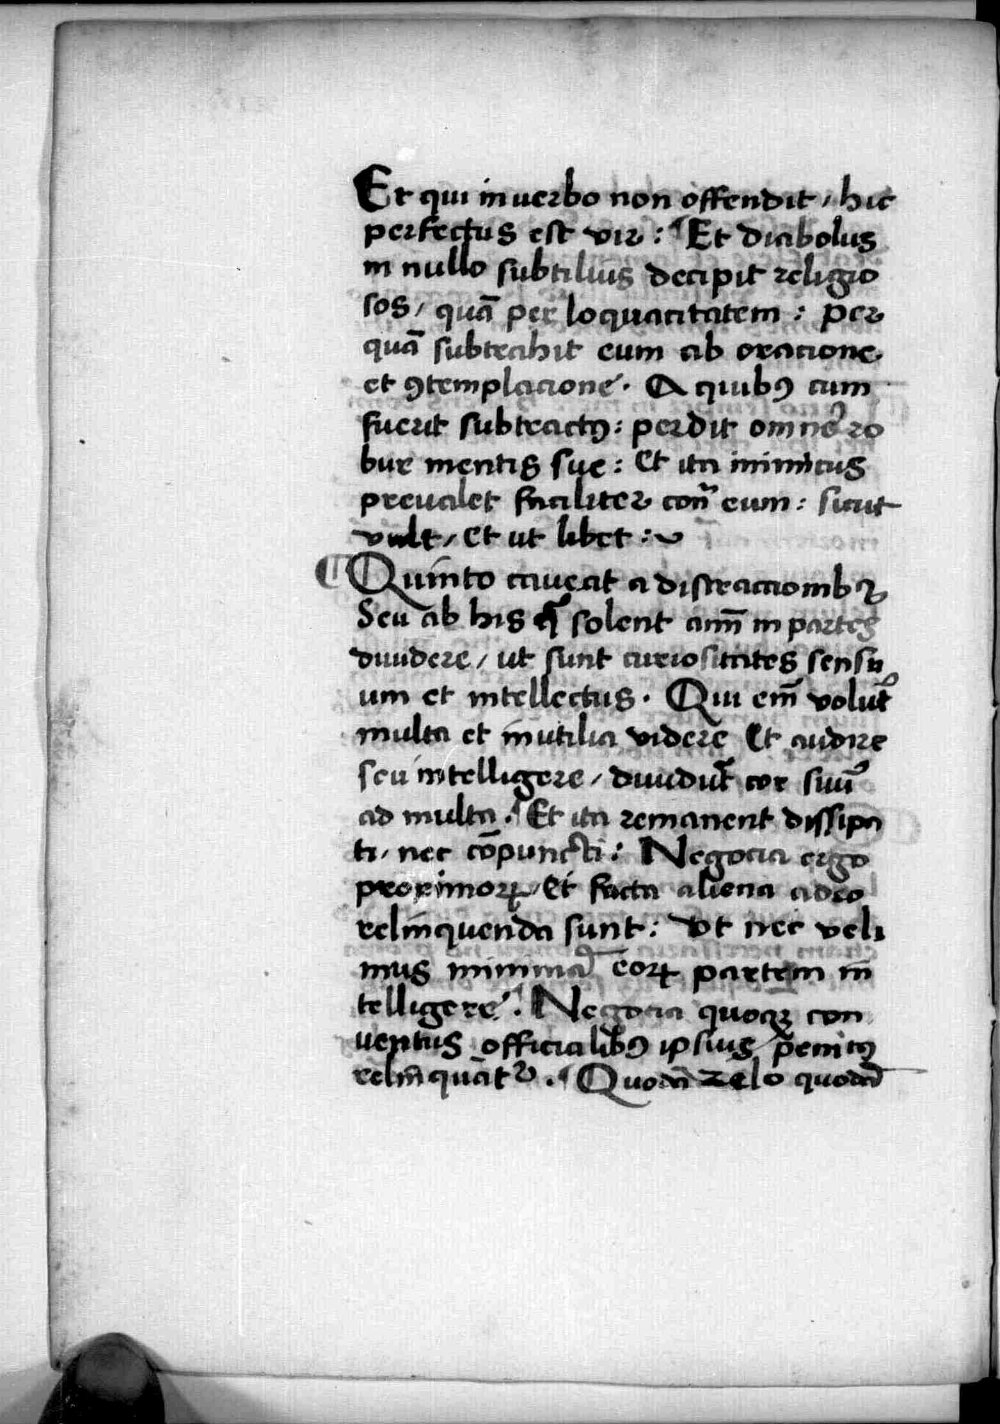 Et qui in verbo non offendit / hic
perfectus est vir : Et diabolus
in nullo subtilius decipit religio
sos / quā per loquacitatem : per
quā subtrahit eum ab oracione
et ꝯtemplacione . A quibꝰ cum
fuerit subtractꝰ : perdit omnē ro
bur mentis sue : Et ita inimicus
prevalet faciliter con̄ eum : sicut
vult / Et ut libet :
¶ Quinto caveat a distraccionibꝰ
Seu ab his q̄ solent aīm in partes
dividere / ut sunt curiositates sensu
um et intellectus . Qui em̄ volūt
multa et inutilia videre Et audire
seu intelligere / dividūt cor suū
ad multa . Et ita remanent dissipa
ti / nec cōpuncti : Negocia ergo
proximoꝝ / Et facta aliena adeo
relinquenda sunt : Ut nec veli
mus minimā eoꝝ partem in
telligere . Negocia quoqꝫ con
ventus officialibꝰ ipsius penitꝰ
relinquātur . Quodā zelo quodā